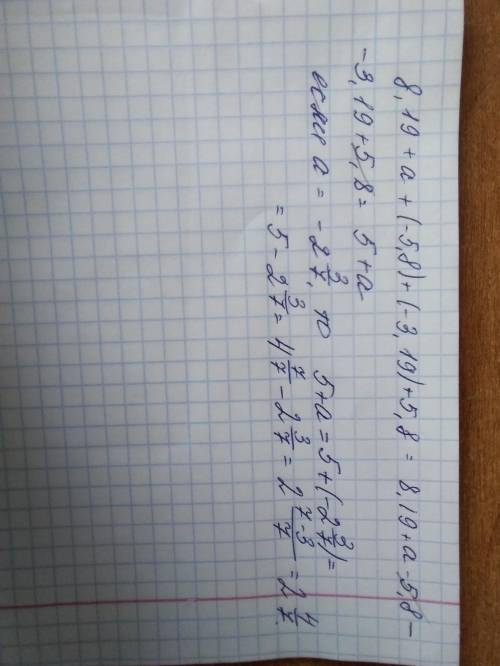 8,19 + a + (-5,8) + (-3,19) + 5,8 = 8,19 + a - 5,8 -
-3,19 + 5,8 = 5 + a
если a = -2 3/7, то 5 + a = 5 + (-2 3/7) =
= 5 - 2 3/7 = 4 7/7 - 2 3/7 = 2 7-3/7 = 2 4/7.